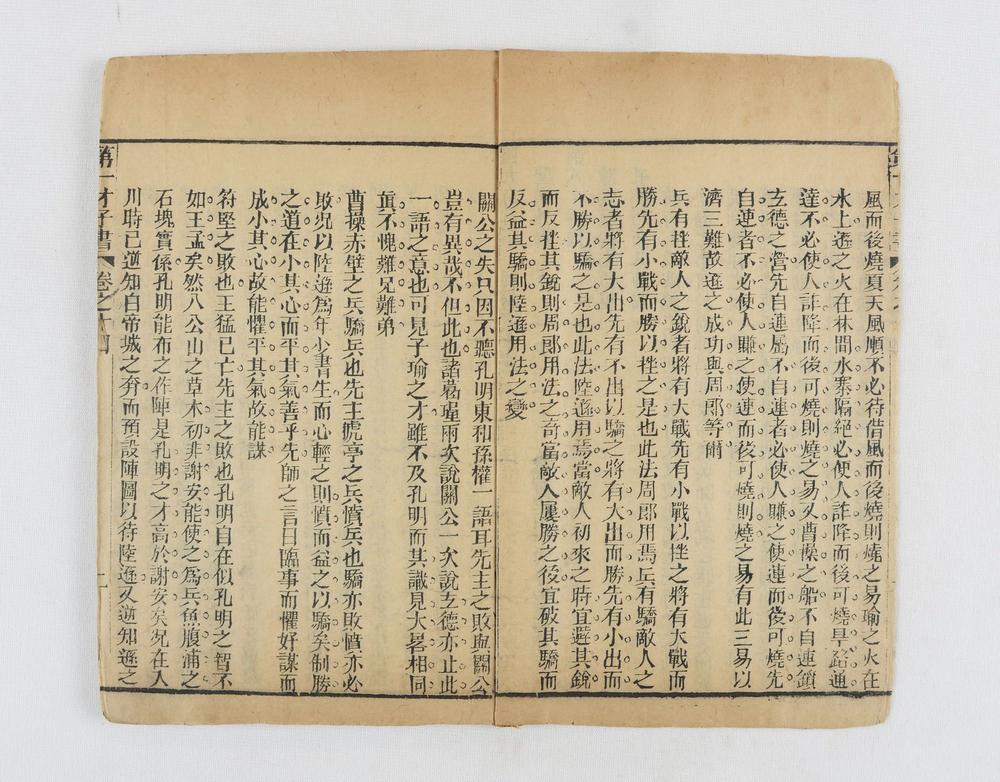 風而後燒夏天風順不必待借風而後燒則燒之易瑜之火在
水上遜之火在林間水寨隔絕必使人詐降而後可燒旱路連
達不必使人詐降而後可燒則燒之易又曹操之船不自連鎖
玄德之營先自連屬不自連者必使人賺之使連而後可燒先
自連者不必使人賺之使連而後可燒則燒之易有此三易以
濟三難故遜之成功與周郎等爾
兵有挫敵人之銳者將有大戰先有小戰以挫之將有大戰而
勝先有小戰而勝以挫之是也此法周郎用焉兵有驕敵人之
志者將有大出先有不出以驕之將有大出而勝先有小出而
不勝以驕之是也此法陸遜用焉當敵人初來之時宜避其銳
而反挫其銳則周郎用法之奇當敵人屢勝之後宜破其驕而
反益其驕則陸遜用法之變
關公之失只因不聽孔明東和孫權一語耳先主之敗與關公
豈有異哉不但此也諸葛瑾兩次說關公一次說玄德亦止此
一語之意也可見子瑜之才雖不及孔明而其識見大畧相同
眞不愧難兄難弟
曹操赤壁之兵驕兵也先主猇亭之兵憤兵也驕亦敗憤亦必
敗况以陸遜爲年少書生而心輕之則憤而益之以驕矣制勝
之道在小其心而平其氣善乎先師之言曰臨事而懼好謀而
成小其心故能懼平其氣故能謀
符堅之敗也王猛已亡先主之敗也孔明自在似孔明之智不
如王孟矣然八公山之草木初非謝安能使之爲兵魚腹浦之
石塊實係孔明能布之作陣是孔明之才高於謝安矣况在入
川時已逆知白帝城之奔而預設陣圖以待陸遜又逆知遜之
第一才子書 卷之十四